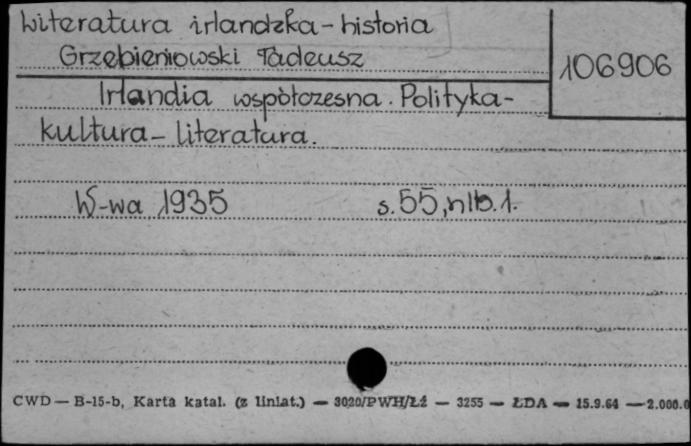 Literatura irlandzka - historia
Grzebieniowski Tadeusz
106906
Irlandia współczesna. Polityka -
kultura - literatura.
W-wa 1935 s. 55, nlb. 1.
CWD — B-15-b, Karta katal. (z liniat.) — 3020/PWH/Łź — 3255 — ŁDA — 15.9.64 — 2.000.0